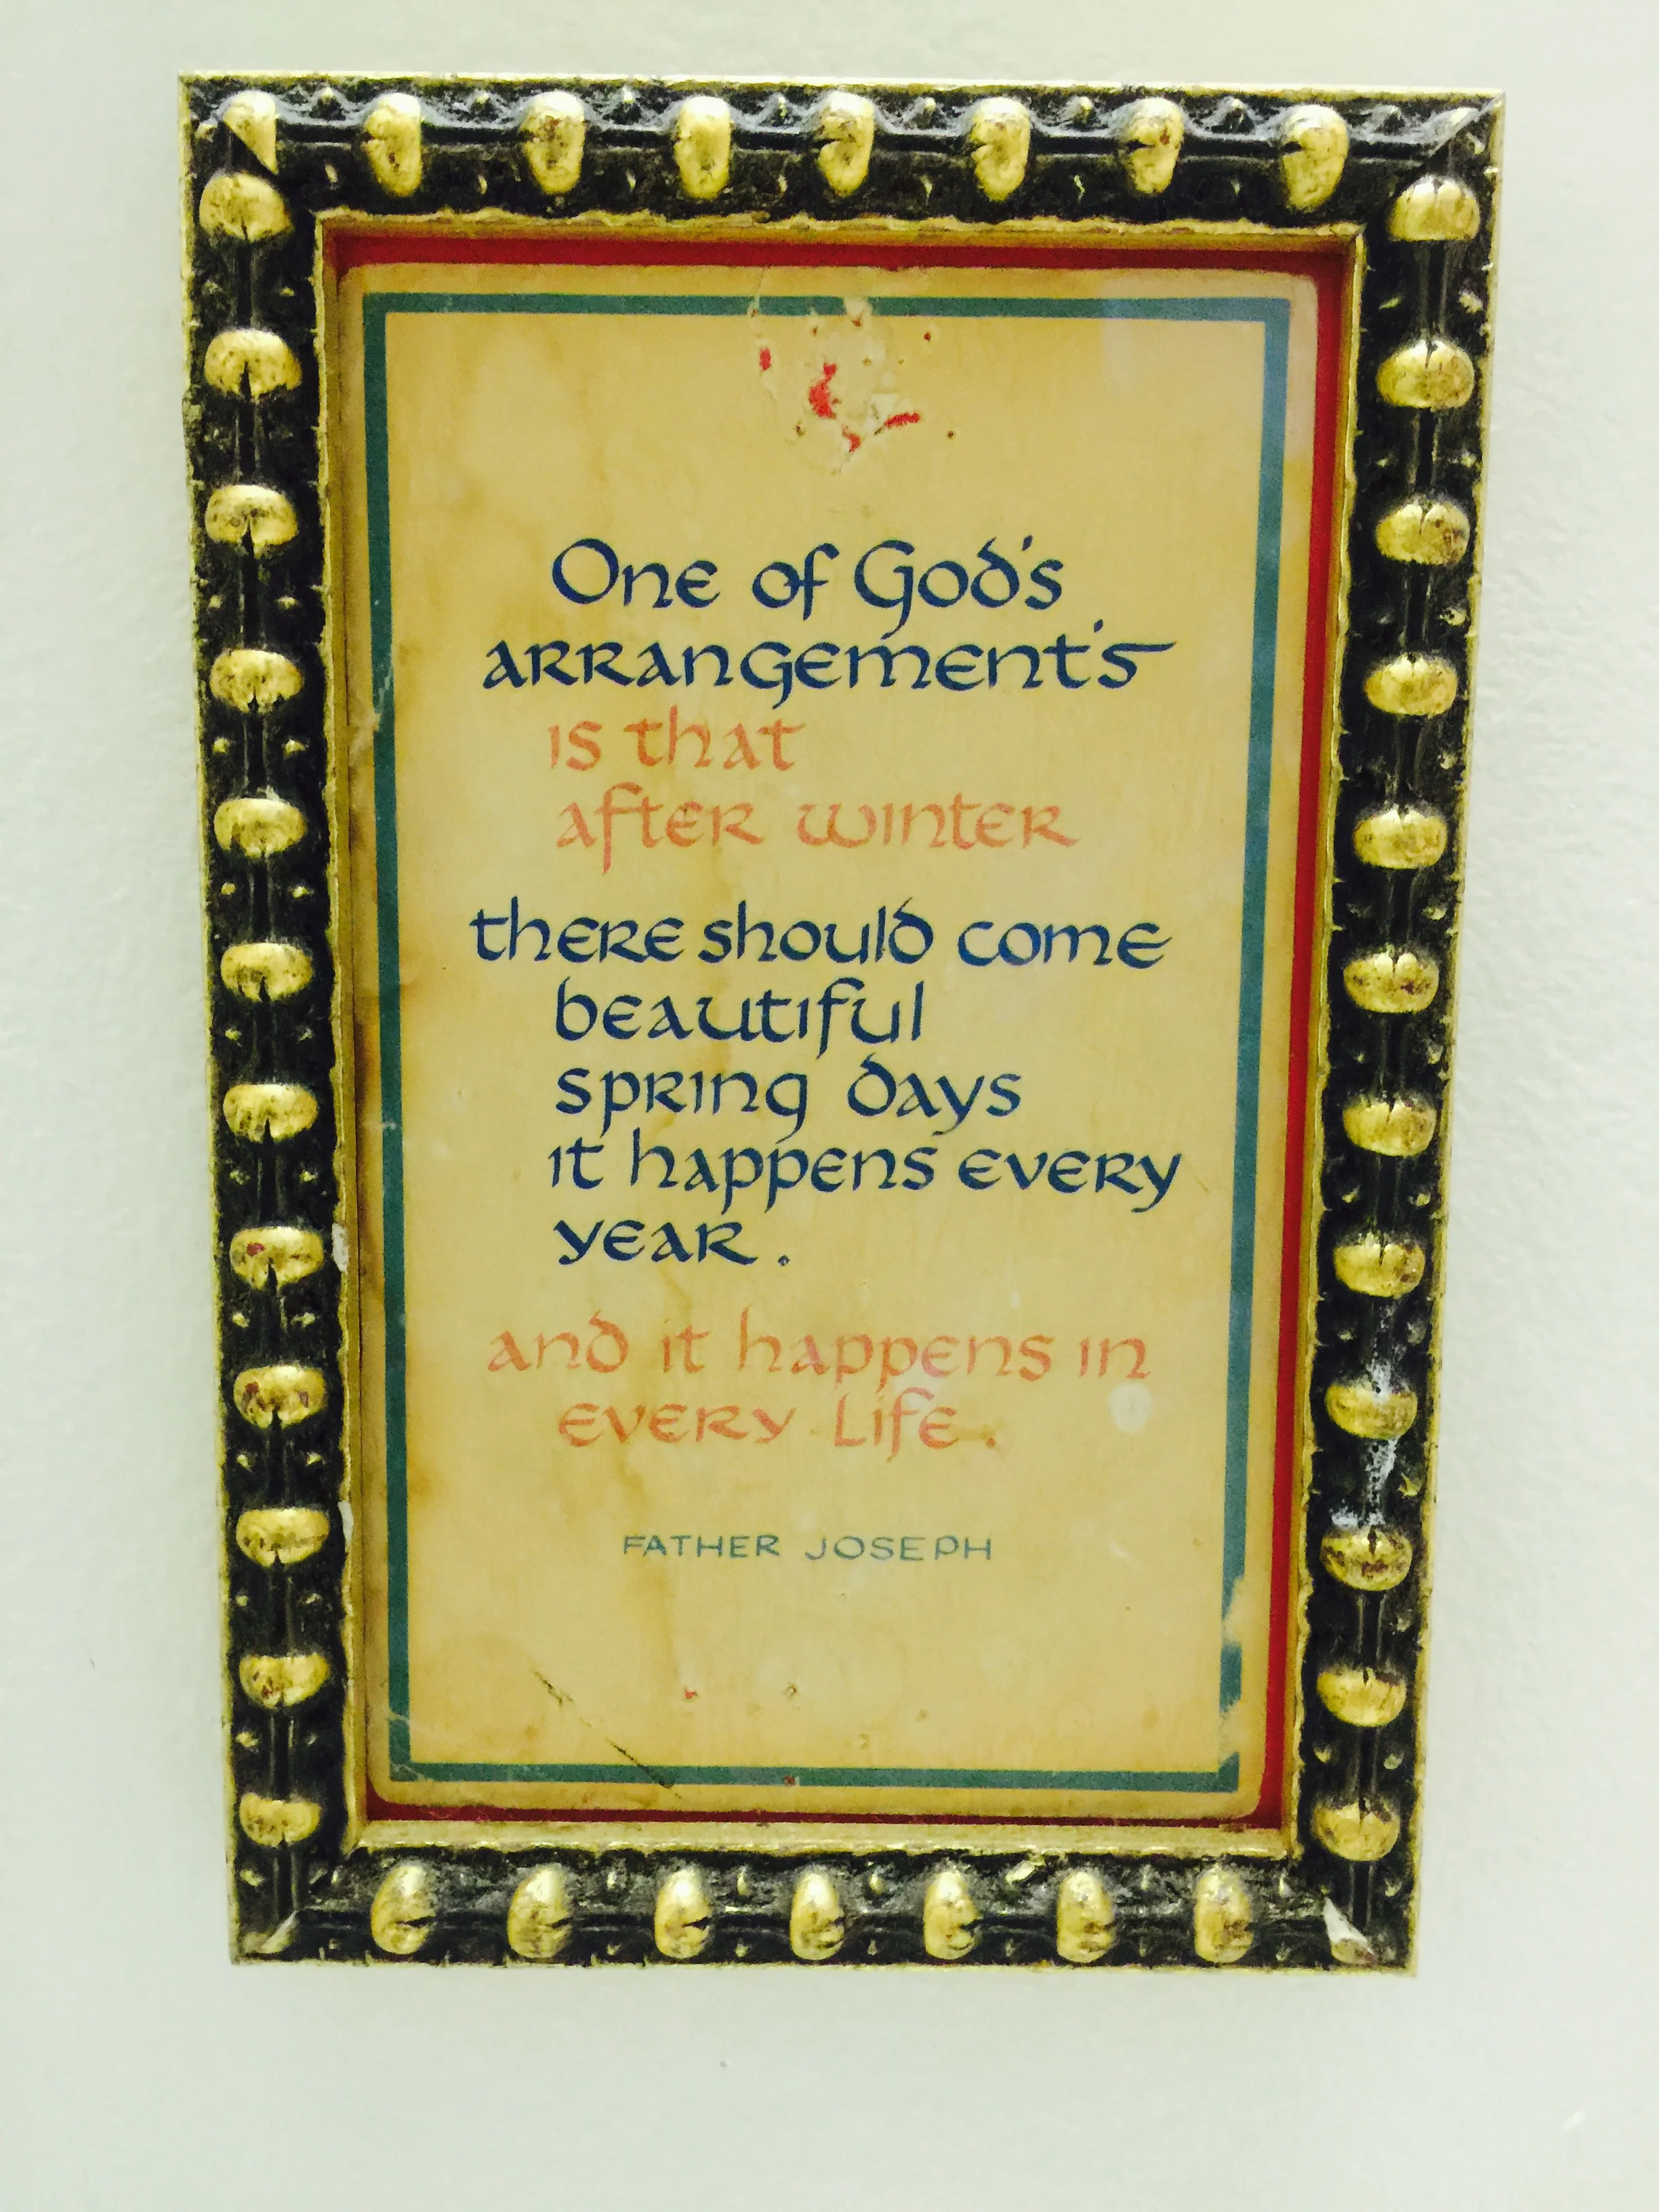 One of God's
arrangement's
is that
after winter
there should come
beautiful
spring days
it happens every
year.
and it happens in
every Life.
FATHER JOSEPH